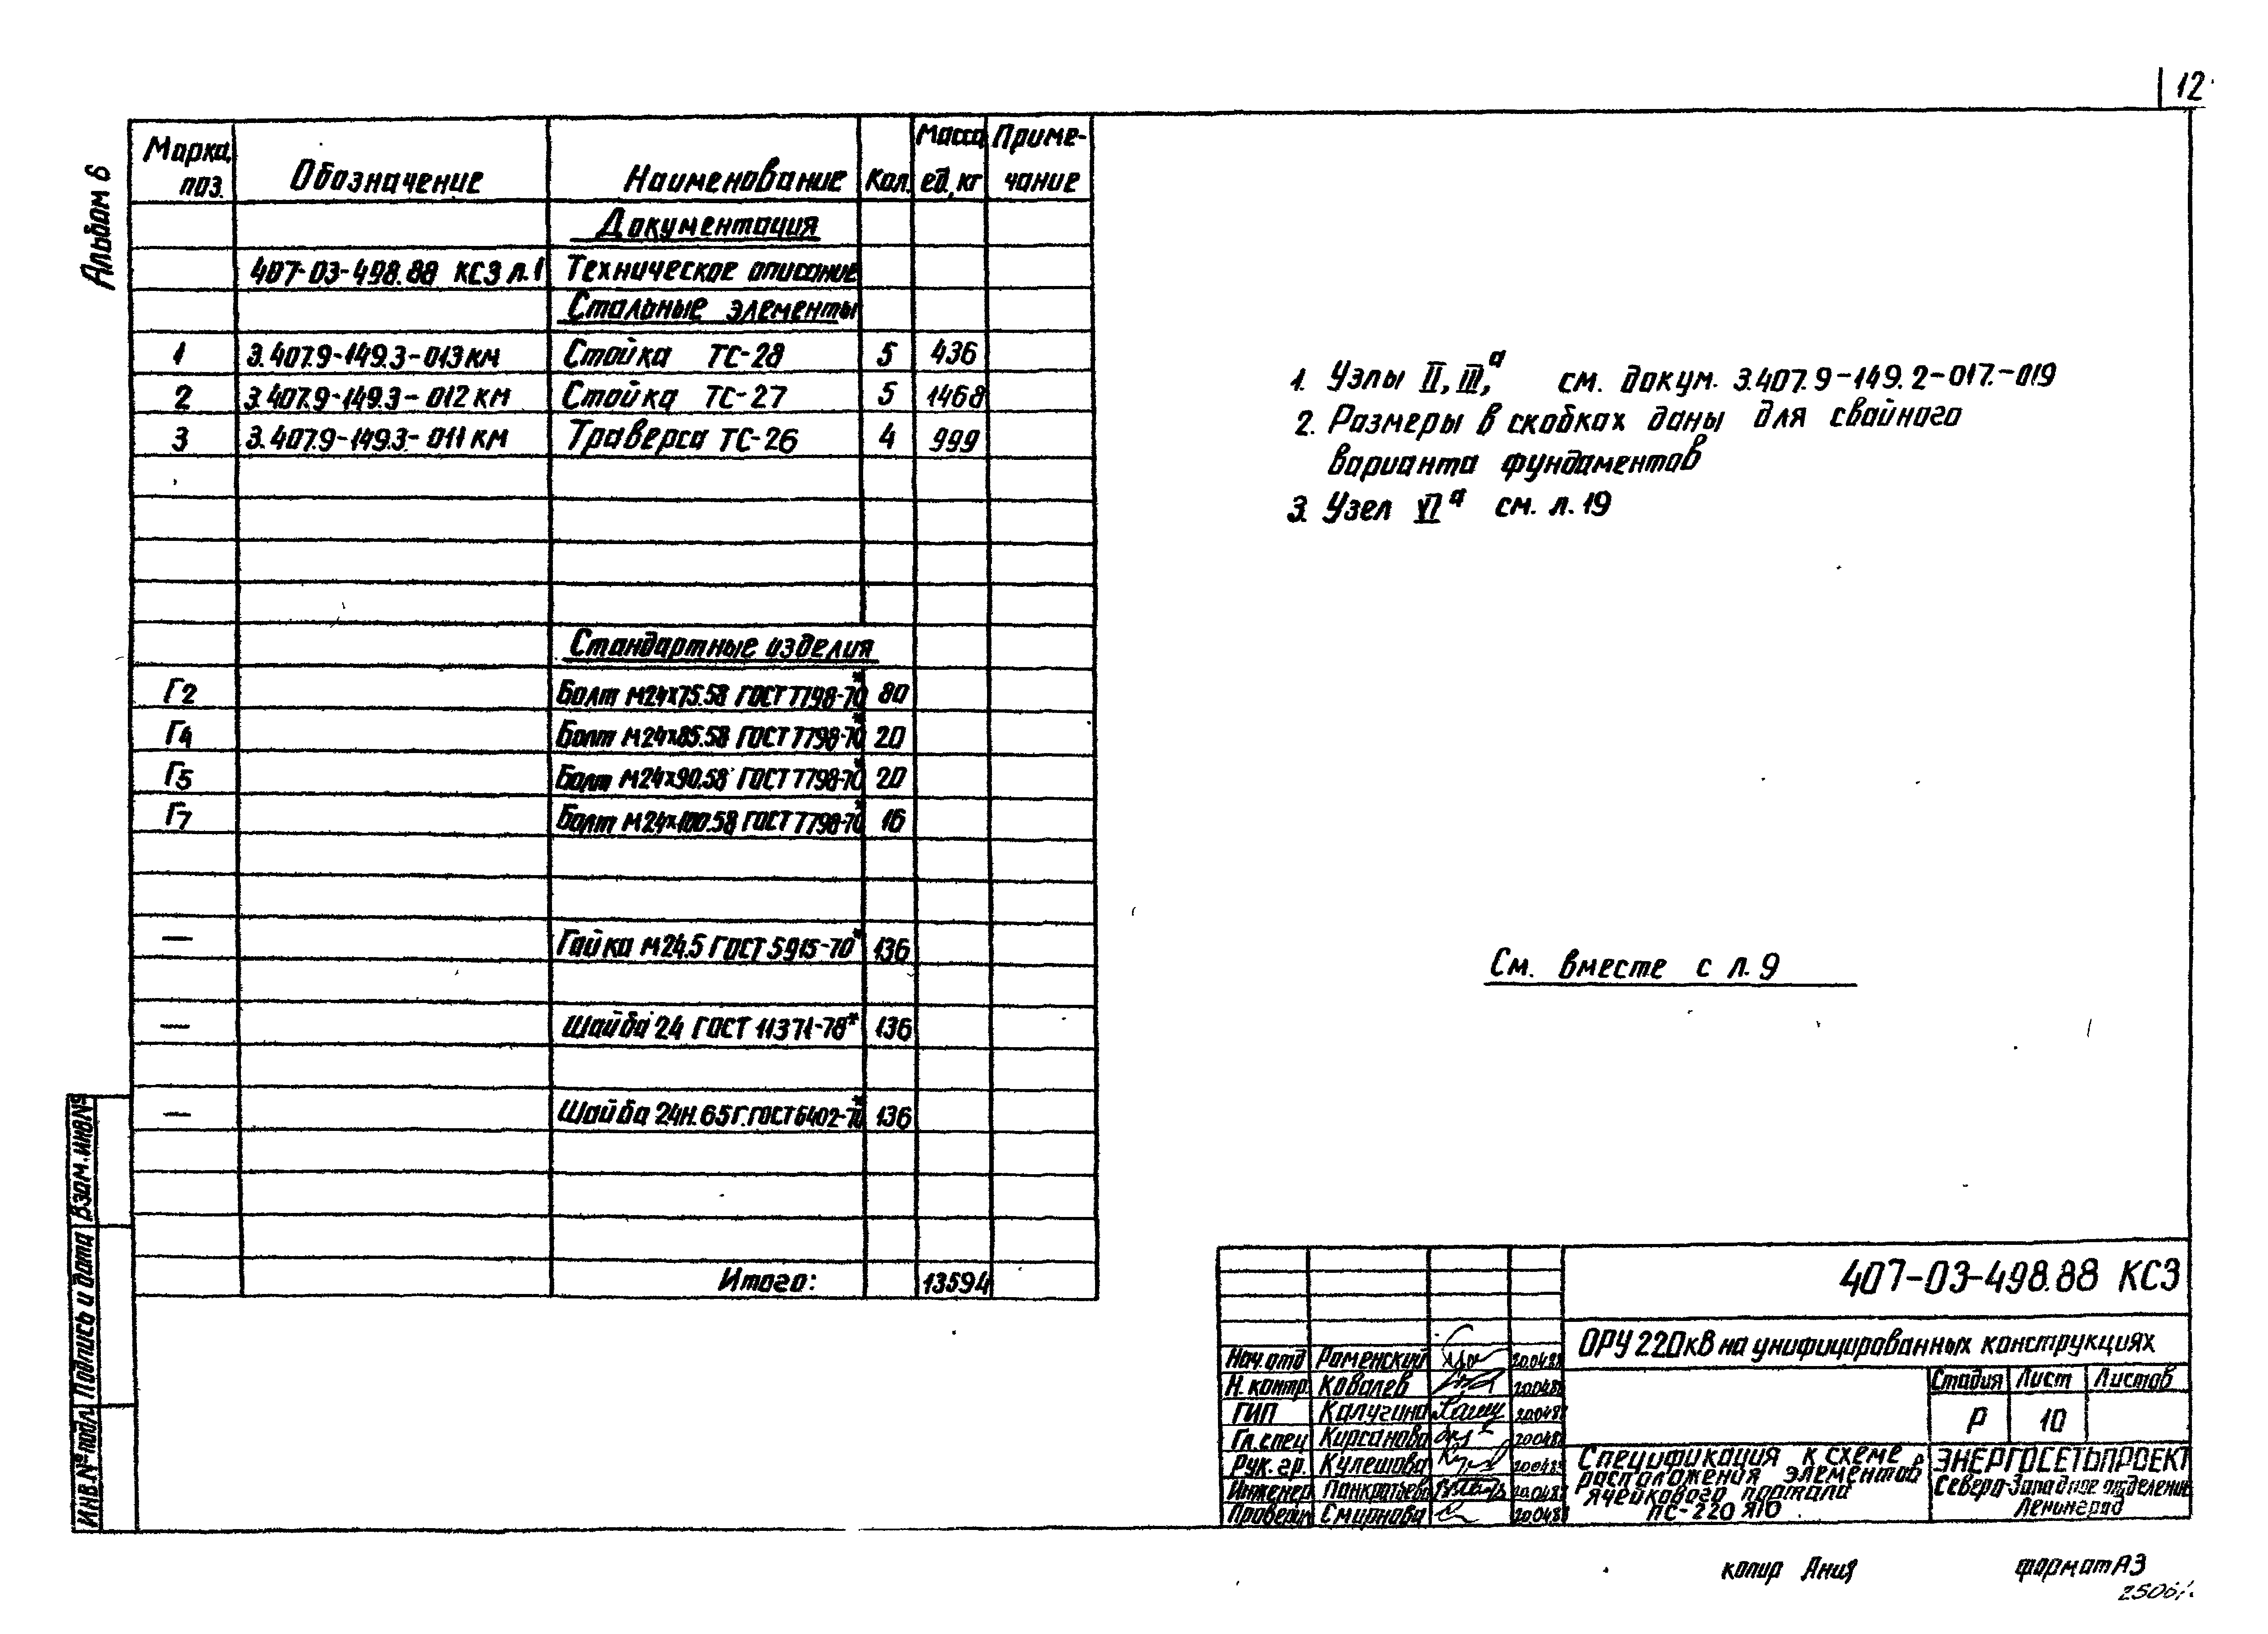 12
Альбом 6
Марка, поз. Обозначение Наименование Кол. Масса ед, кг Приме-чание
Документация
407-03-498.88 КС3 л.1 Техническое описание
Стальные элементы
1 3.407.9-149.3-013 КМ Стойка ТС-28 5 436
2 3.407.9-149.3-012 КМ Стойка ТС-27 5 1468
3 3.407.9-149.3-011 КМ Траверса ТС-26 4 999
Стандартные изделия
Г2 Болт М24х75.58 ГОСТ 7798-70* 80
Г4 Болт М24х85.58 ГОСТ 7798-70* 20
Г5 Болт М24х90.58 ГОСТ 7798-70* 20
Г7 Болт М24х100.58 ГОСТ 7798-70* 16
— Гайка М24.5 ГОСТ 5915-70* 136
— Шайба 24 ГОСТ 11371-78* 136
— Шайба 24Н.65Г.ГОСТ 6402-70* 136
Итого: 13594
1. Узлы II, III,а см. докум. 3.407.9-149.2-017.-019
2. Размеры в скобках даны для свайного
варианта фундаментов
3. Узел VIа см. л.19
См. вместе с л.9
Взам.инв.№
Подпись и дата
Инв.№ подл.
407-03-498.88 КС3
ОРУ 220кВ на унифицированных конструкциях
Нач.отд Роменский 20.04.88
Н. контр. Ковалев 20.04.88
ГИП Калугина 20.04.88
Гл.спец Кирсанова 20.04.88
Рук. гр. Кулешова 20.04.88
Инженер Панкратьева 20.04.88
Проверил Смирнова 20.04.88
Стадия Лист Листов
Р 10
Спецификация к схеме
расположения элементов
ячейкового портала
ПС-220 Я10
ЭНЕРГОСЕТЬПРОЕКТ
Северо-Западное отделение
Ленинград
копир Ания
формат А3